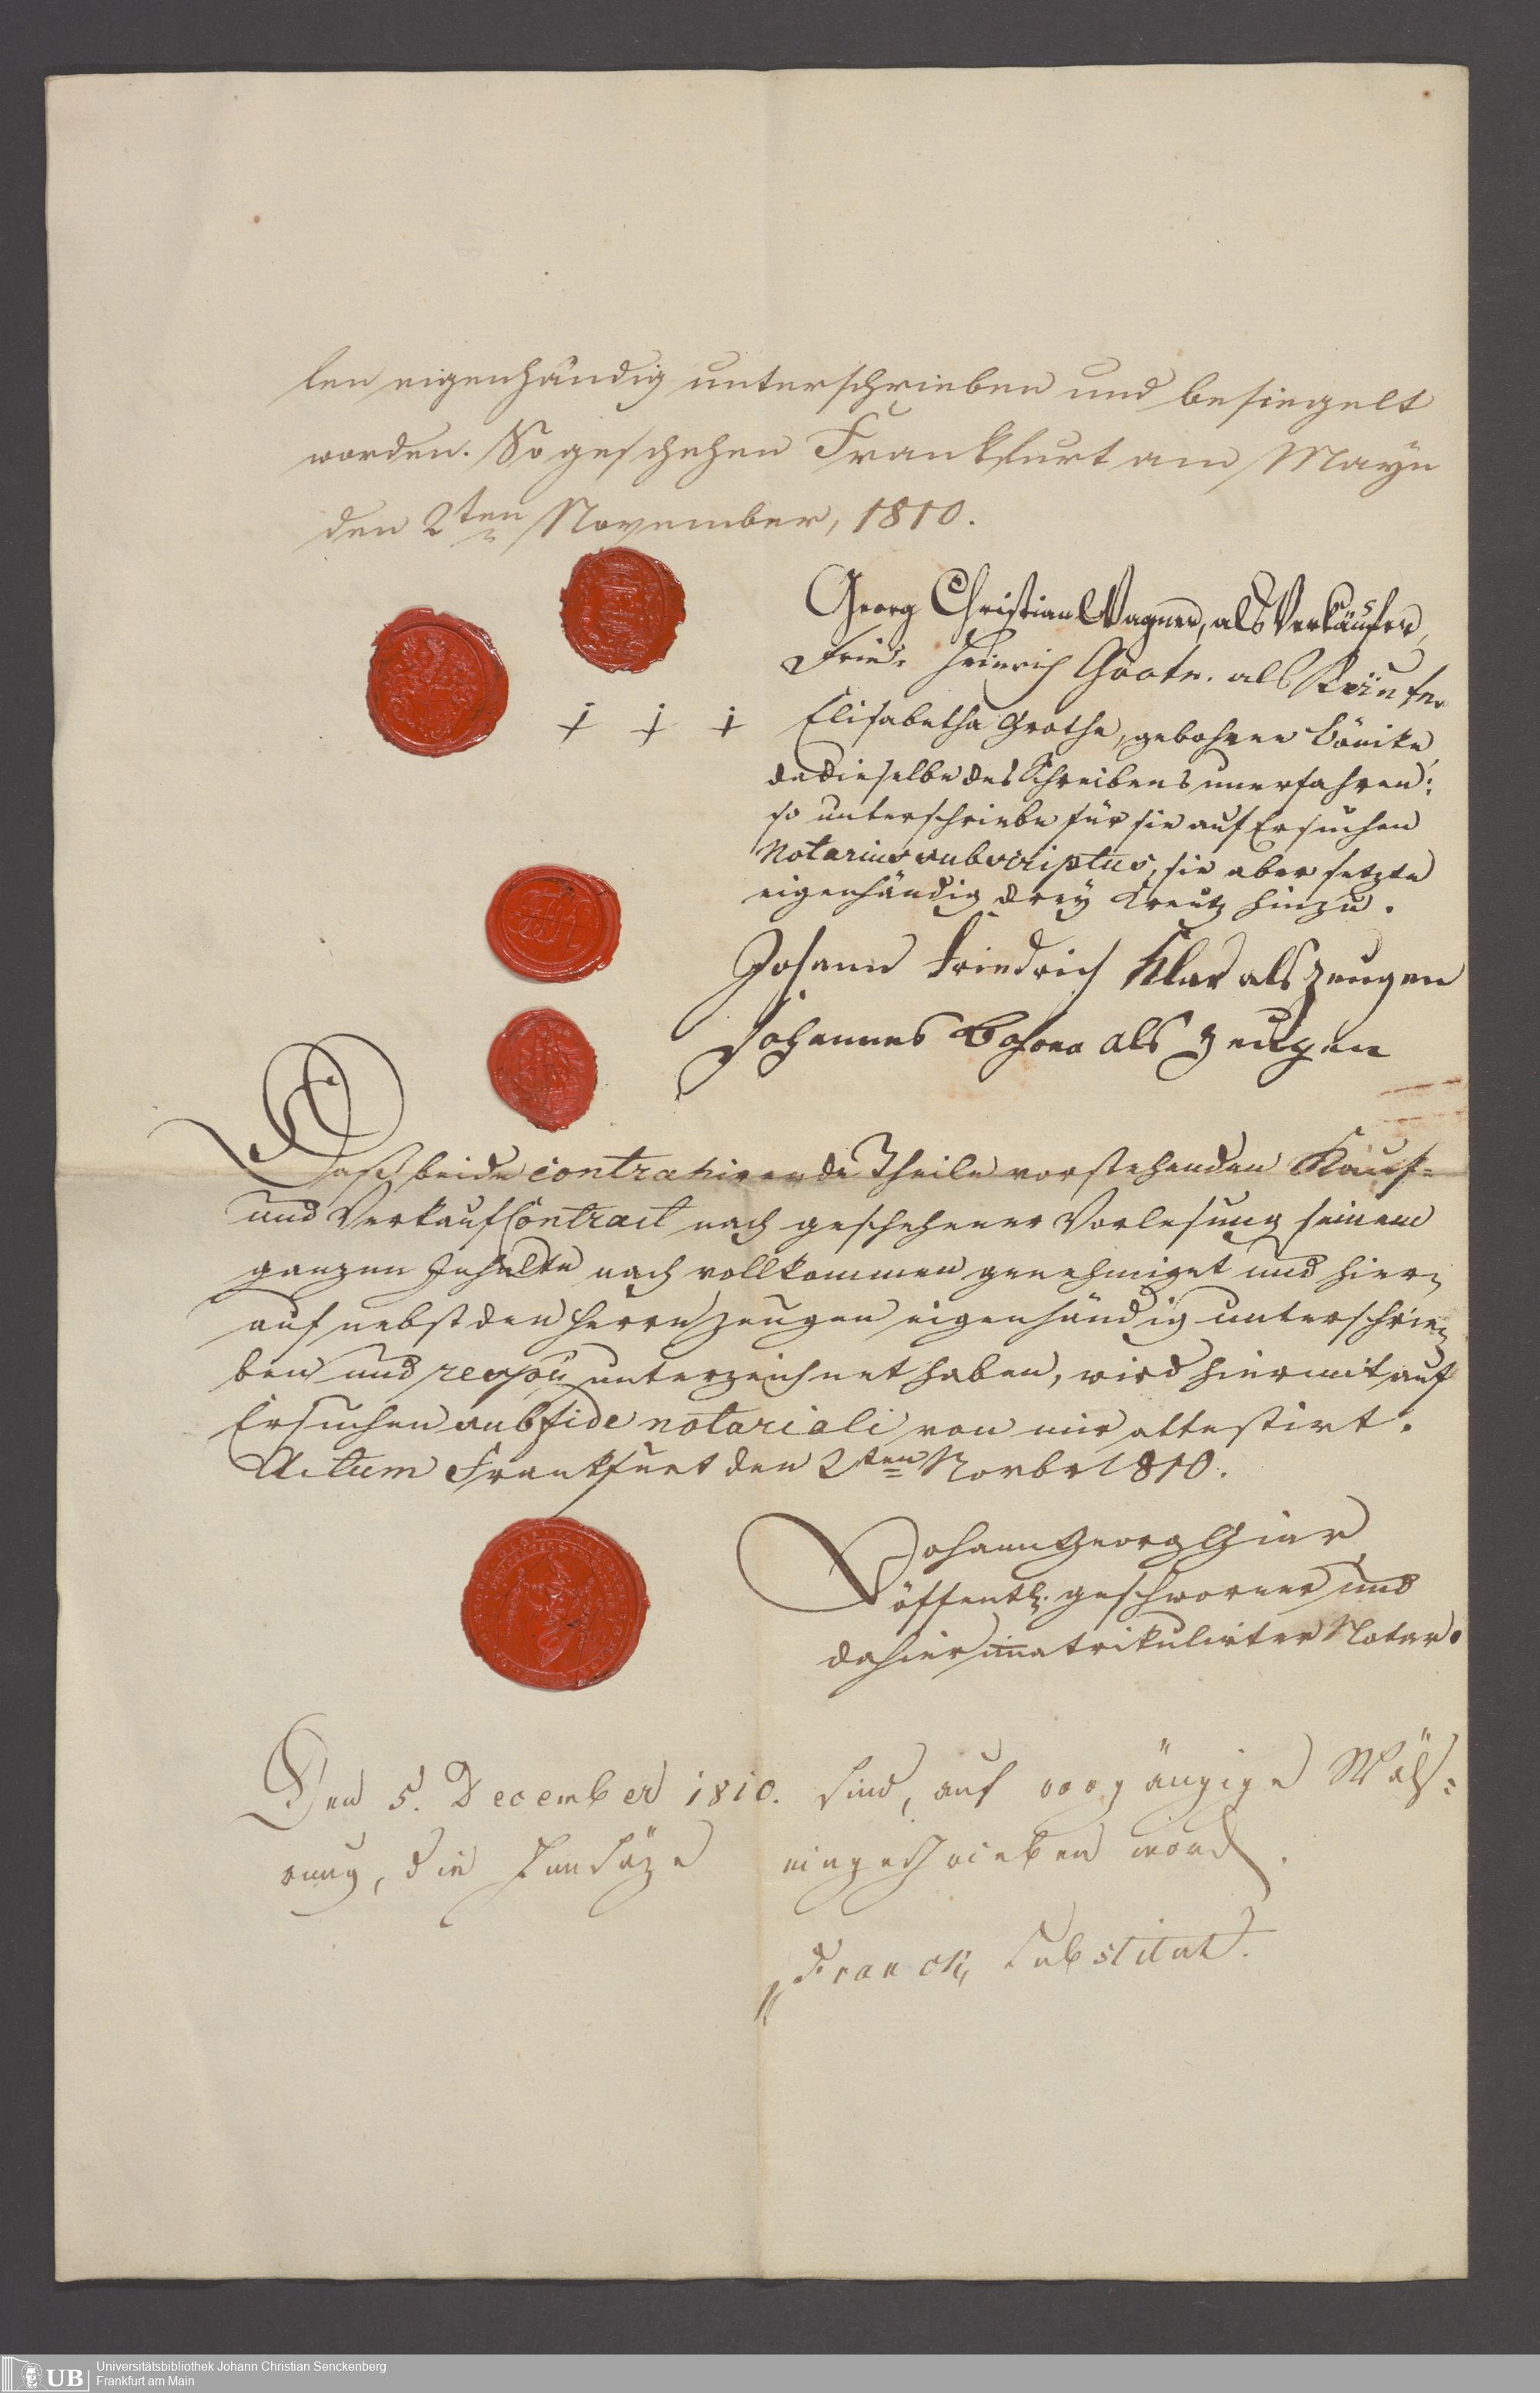 len eigenhändig unterschrieben und besiegelt
worden. So geschehen Frankfurt am Mayn
den 2ten November, 1810.
Georg Christian Wagner, als Verkäufer,
Fried. Heinrich Grote. als Käufer
Elisabetha Grothe, gebohrne Bönike,
da dieselbe des Schreibens unerfahren:
so unterschriebe für sie auf Ersuchen
Notarius subscriptus, sie aber setzte
eigenhändig drey Kreutz hinzu.
Johann Friedrich Klar als Zeugen
Johannes als Zeugen
Daß beide contrahirende Theile vorstehenden Kauf=
und Verkauf Contract nach geschehener Vorlesung seinem
ganzen Inhalte nach vollkommen genehmiget und hier=
auf nebst den Herrn Zeugen eigenhändig unterschrie=
ben und unterzeichnet haben, wird hiermit auf
Ersuchen sub fide notariali von mir attestirt.
Actum Frankfurt den 2ten Novbr 1810.
Johann Georg
öffentl. geschworner und
dahier immatrikulirter Notar.
Den 5. December 1810. sind, auf vorgängige Wäh=
rung, die Insäze eingeschrieben word.
Franck, Substitut.
UB
Universitätsbibliothek Johann Christian Senckenberg
Frankfurt am Main